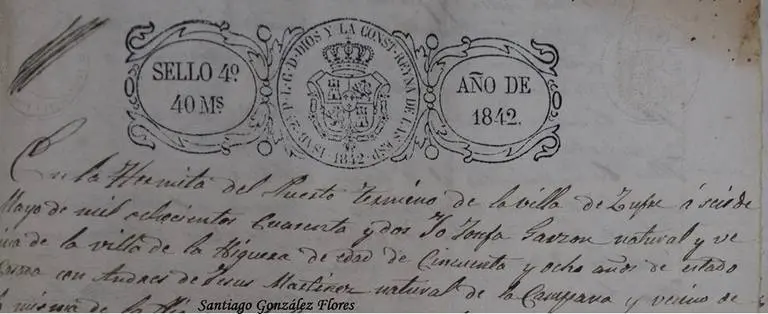 SELLO 4º
40 Ms.
ISAB. 2ª P. L. G. D. DIOS Y LA CONST. REYNA DE LAS ESP.
1842
AÑO DE
1842.
En la Hermita del Puerto termino de la villa de Zufre á seis de
Mayo de mil ochocientos cuarenta y dos Yo Josefa Garzon natural y ve
cina de la villa de la Higuera de edad de Cincuenta y ocho años de estado
Casada con Andres de Jesus Martinez natural de la Campana y vecino de
misma de la
Santiago González Flores